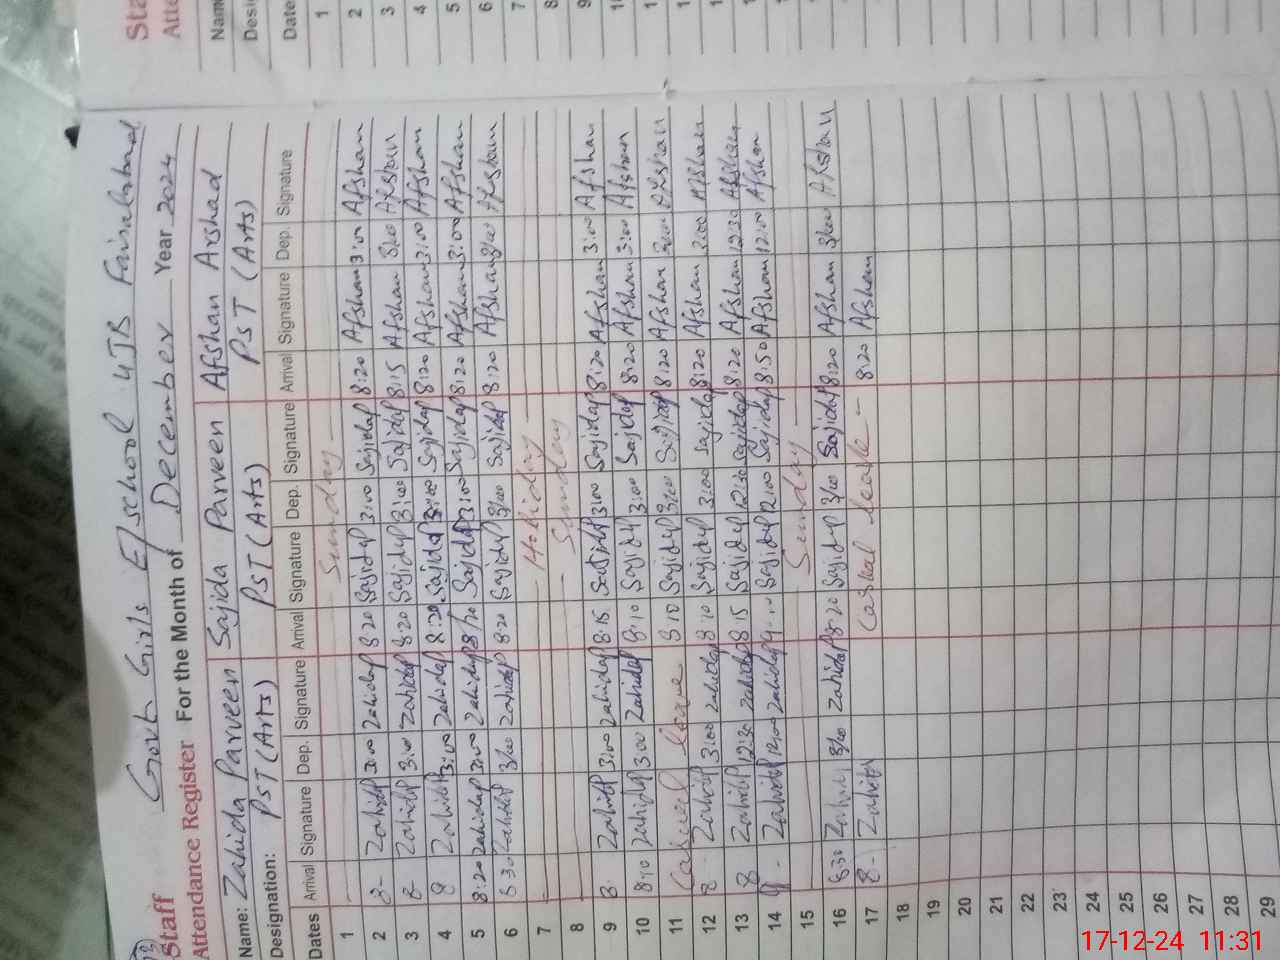 Govt Girls E/School 4JB Faisalabad
Staff
Attendance Register For the Month of December Year 2024
Name: Zahida Parveen Sajida Parveen Afshan Arshad
Designation: PST (Arts) PST (Arts) PST (Arts)
Dates Arrival Signature Dep. Signature Arrival Signature Dep. Signature Arrival Signature Dep. Signature
1 Sunday
2 8- Zahida 3:00 Zahida 8:20 Sajida 3:00 Sajida 8:20 Afshan 3:00 Afshan
3 8- Zahida 3:00 Zahida 8:20 Sajida 3:00 Sajida 8:15 Afshan 3:00 Afshan
4 8 Zahida 3:00 Zahida 8:20 Sajida 3:00 Sajida 8:20 Afshan 3:00 Afshan
5 8:20 Zahida 3:00 Zahida 8:20 Sajida 3:00 Sajida 8:20 Afshan 3:00 Afshan
6 8:30 Zahida 3:00 Zahida 8:20 Sajida 3:00 Sajida 8:20 Afshan 3:00 Afshan
7 - Holiday -
8 - Sunday
9 8- Zahida 3:00 Zahida 8:15 Sajida 3:00 Sajida 8:20 Afshan 3:00 Afshan
10 8:10 Zahida 3:00 Zahida 8:10 Sajida 3:00 Sajida 8:20 Afshan 3:00 Afshan
11 Casual leave 8:10 Sajida 3:00 Sajida 8:20 Afshan 3:00 Afshan
12 8- Zahida 3:00 Zahida 8:10 Sajida 3:00 Sajida 8:20 Afshan 3:00 Afshan
13 8 Zahida 12:30 Zahida 8:15 Sajida 12:30 Sajida 8:20 Afshan 12:30 Afshan
14 9- Zahida 12:00 Zahida 9- Sajida 12:00 Sajida 8:50 Afshan 12:00 Afshan
15 Sunday -
16 8:30 Zahida 3:00 Zahida 8:20 Sajida 3:00 Sajida 8:20 Afshan 3:00 Afshan
17 8- Zahida Casual leave - 8:20 Afshan
18
19
20
21
22
23
24
25
26
27
28
29
Name
Date
1
2
3
4
5
6
7
8
9
17-12-24 11:31